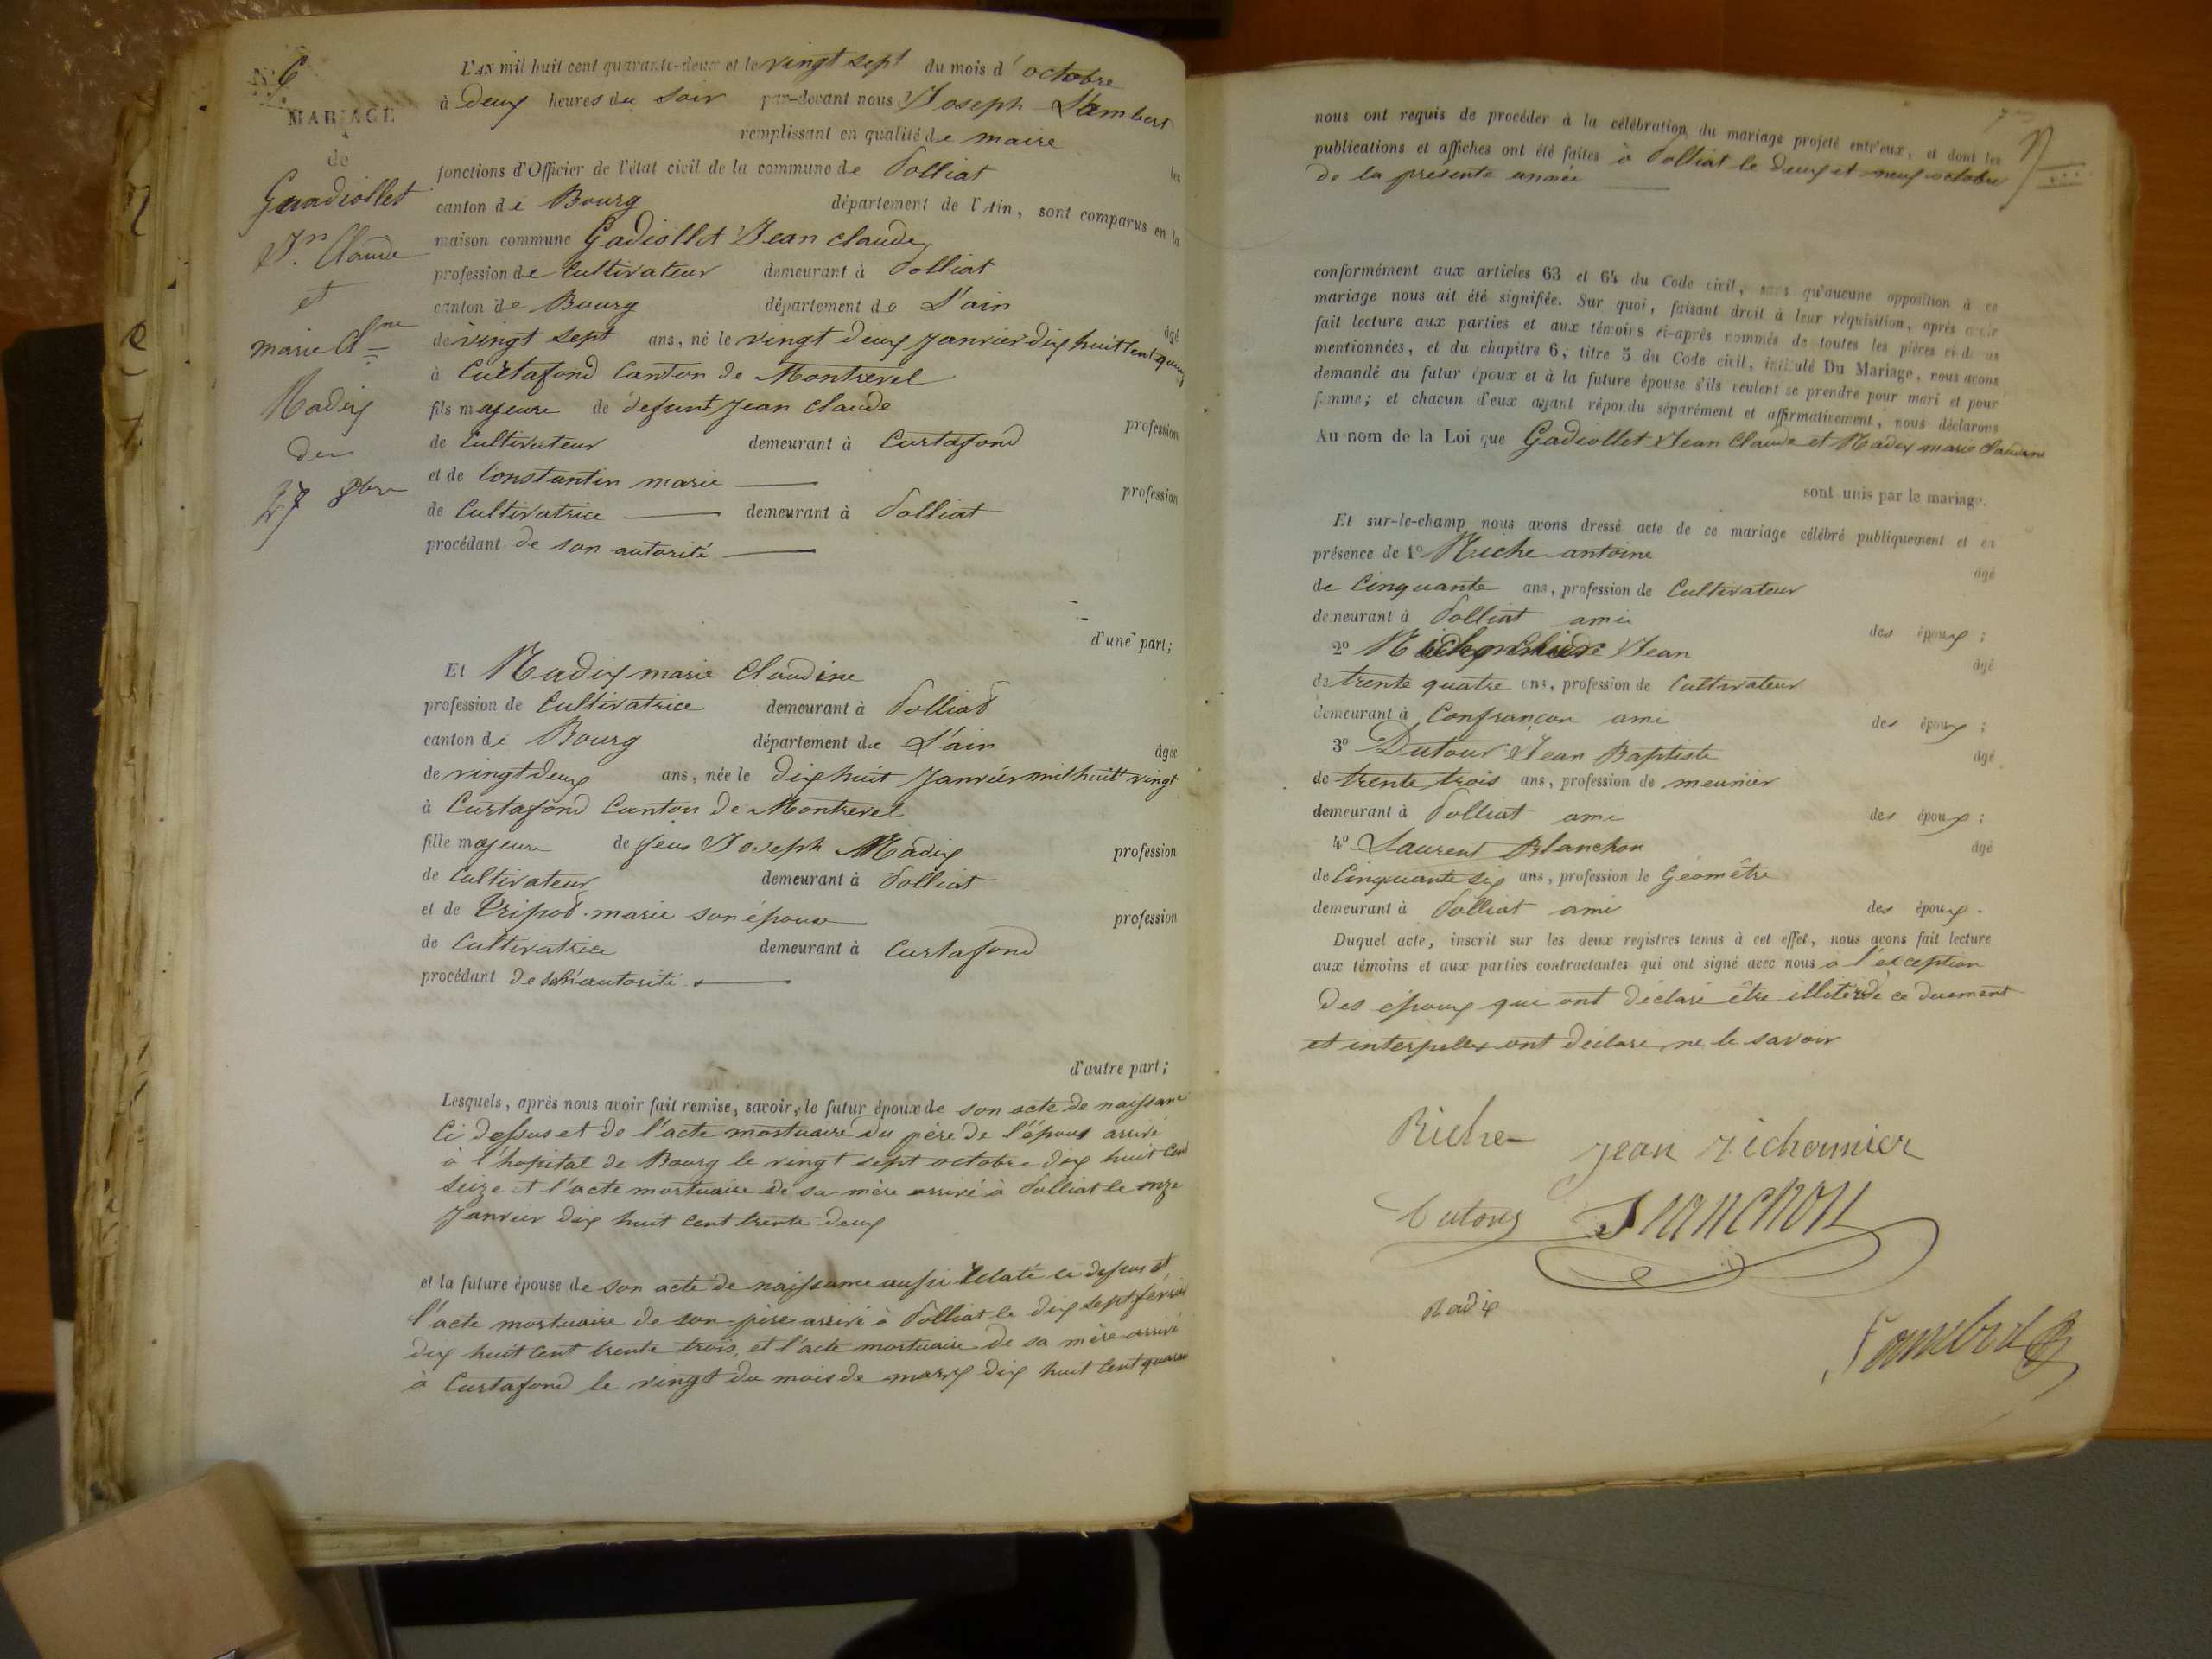 N° 6
MARIAGE
de
Gandiollet
Jn. Claude
et
marie Clne
Nadix
du
27 8bre
L'AN mil huit cent quarante-deux et le vingt sept du mois d'octobre
à deux heures du soir par-devant nous Joseph Lambert
remplissant en qualité de maire les
fonctions d'Officier de l'état civil de la commune de Polliat
canton de Bourg département de l'Ain, sont comparus en la
maison commune Gadiollet Jean Claude
profession de Cultivateur demeurant à Polliat
canton de Bourg département de L'ain âgé
de vingt sept ans, né le vingt deux Janvier dix huit cent quinze
à Curtafond Canton de Montrevel
fils majeure de defunt Jean Claude profession
de Cultivateur demeurant à Curtafond
et de Constantin marie profession
de Cultivatrice demeurant à Polliat
procédant de son autorité
d'une part;
Et Nadix marie Claudine
profession de Cultivatrice demeurant à Polliat
canton de Bourg département de L'ain âgée
de vingt deux ans, née le dix huit Janvier mil huit vingt
à Curtafond Canton de Montrevel
fille majeure de feu Joseph Nadix profession
de Cultivateur demeurant à Polliat
et de Pripod marie son épouse profession
de Cultivatrice demeurant à Curtafond
procédant de autorité
d'autre part;
Lesquels, après nous avoir fait remise, savoir, le futur époux de son acte de naissance
Ci dessus et de l'acte mortuaire du père de l'époux arrivé
à l'hopital de Bourg le vingt sept octobre dix huit cent
seize et l'acte mortuaire de sa mère arrivé à Polliat le onze
Janvier dix huit cent trente deux
et la future épouse de son acte de naissance aussi relaté ci dessus et
l'acte mortuaire de son père arrivé à Polliat le dix sept février
dix huit cent trente trois, et l'acte mortuaire de sa mère arrivé
à Curtafond le vingt du mois de mars dix huit cent quarante
nous ont requis de procéder à la célébration du mariage projeté entr'eux, et dont les
publications et affiches ont été faites à Polliat le deux et neuf octobre
de la presente année
conformément aux articles 63 et 64 du Code civil, sans qu'aucune opposition à ce
mariage nous ait été signifiée. Sur quoi, faisant droit à leur réquisition, après avoir
fait lecture aux parties et aux témoins ci-après nommés de toutes les pièces ci-dessus
mentionnées, et du chapitre 6, titre 5 du Code civil, intitulé Du Mariage, nous avons
demandé au futur époux et à la future épouse s'ils veulent se prendre pour mari et pour
femme; et chacun d'eux ayant répondu séparément et affirmativement, nous déclarons
Au nom de la Loi que Gadiollet Jean Claude et Nadix marie Claudine
sont unis par le mariage.
Et sur-le-champ nous avons dressé acte de ce mariage célébré publiquement et en
présence de 1° Riche antoine âgé
de Cinquante ans, profession de Cultivateur
demeurant à Polliat ami des époux;
2° Jean âgé
de trente quatre ans, profession de Cultivateur
demeurant à Confrancon ami des époux;
3° Dutour Jean Baptiste âgé
de trente trois ans, profession de meunier
demeurant à Polliat ami des époux;
4° Laurent Blanchon âgé
de Cinquante six ans, profession de Géomêtre
demeurant à Polliat ami des époux.
Duquel acte, inscrit sur les deux registres tenus à cet effet, nous avons fait lecture
aux témoins et aux parties contractantes qui ont signé avec nous à l'exception
des époux qui ont déclaré être de ce duement
et interpellés ont déclaré ne le savoir
Riche
Jean Michonnier
Dutour
Blanchon
Nadix
Lambert